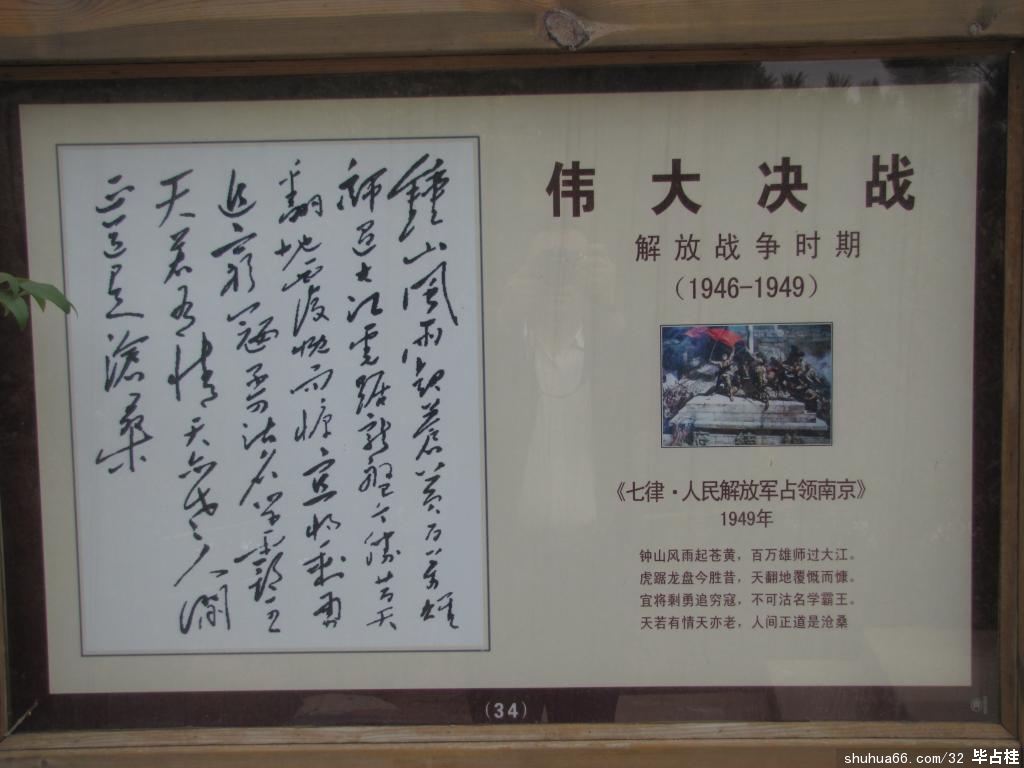 鐘山風雨起蒼黄百万雄
師過大江虎踞龍盤今勝昔天
翻地覆慨而慷宜将剩勇
追窮寇不可沽名学霸王
天若有情天亦老人間
正道是滄桑
伟大决战
解放战争时期
(1946-1949)
《七律·人民解放军占领南京》
1949年
钟山风雨起苍黄，百万雄师过大江。
虎踞龙盘今胜昔，天翻地覆慨而慷。
宜将剩勇追穷寇，不可沽名学霸王。
天若有情天亦老，人间正道是沧桑
(34)
shuhua66.com/32 毕占桂